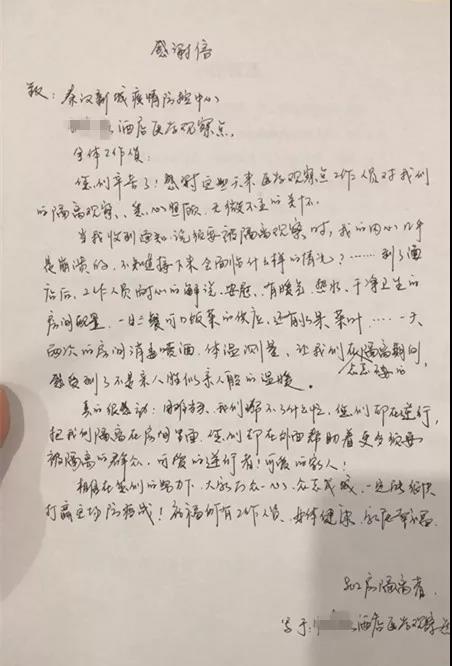 感谢信
致：秦汉新城疫情防控中心
酒店医学观察点
全体工作人员：
您们辛苦了！感谢这些天来医学观察点工作人员对我们
的隔离观察、悉心照顾、无微不至的关怀。
当我收到通知说须要被隔离观察时，我的内心几乎
是崩溃的，不知道接下来会面临什么样的情况？……到了酒
店后，工作人员耐心的解说、安慰，有暖气、热水、干净卫生的
房间配置，一日三餐可口饭菜的供应，还有水果、茶叶……一天
两次的房间消毒喷洒、体温测量，让我们在隔离期间，
感受到了不是亲人胜似亲人般的温暖。
真的很感动！国难当头，我们帮不了什么忙，您们却在逆行，
把我们隔离在房间里面，您们却在外面帮助着更多须要
被隔离的群众，可敬的逆行者！可爱的家人！
相信在您们的努力下，大家万众一心、众志成城，一定能很快
打赢这场防疫战！祝福所有工作人员，身体健康，家庭幸福
隔离者
写于：酒店医学观察点